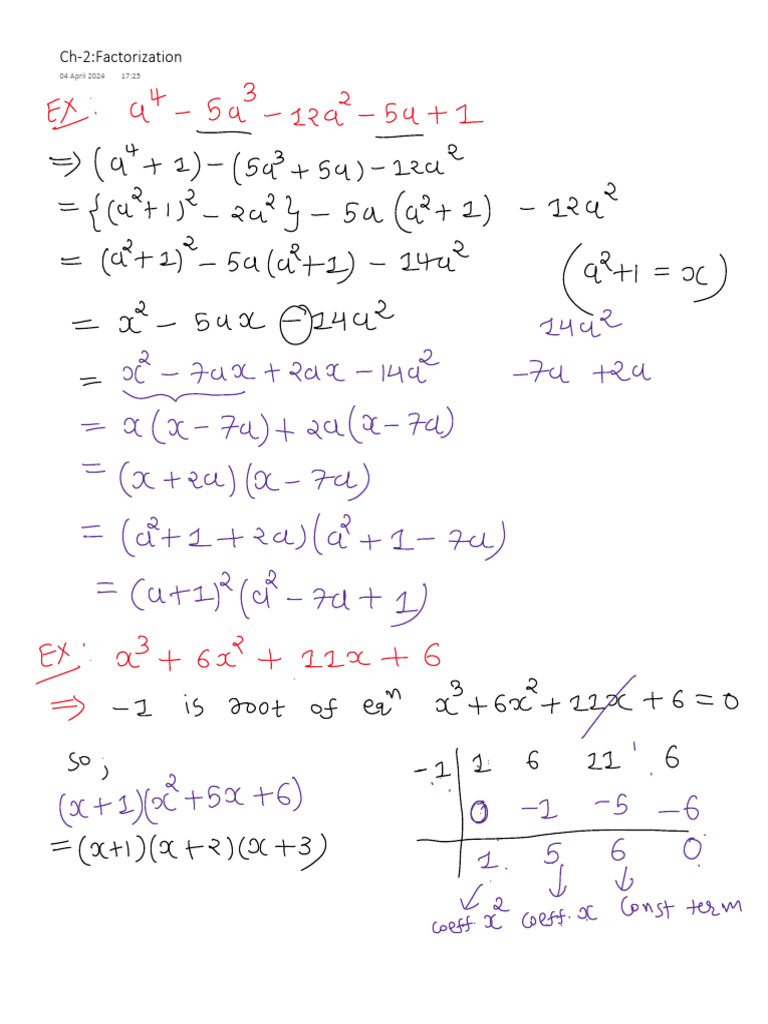 Ch-2:Factorization
04 April 2024 17:23
EX: a⁴ - 5a³ - 12a² - 5a + 1
⇒ (a⁴ + 1) - (5a³ + 5a) - 12a²
= {(a² + 1)² - 2a²} - 5a (a² + 1) - 12a²
= (a² + 1)² - 5a (a² + 1) - 14a² (a² + 1 = x)
= x² - 5ax - 14a² 14a²
= x² - 7ax + 2ax - 14a² -7a +2a
= x(x - 7a) + 2a(x - 7a)
= (x + 2a)(x - 7a)
= (a² + 1 + 2a)(a² + 1 - 7a)
= (a + 1)² (a² - 7a + 1)
EX: x³ + 6x² + 11x + 6
⇒ -1 is root of eqⁿ x³ + 6x² + 11x + 6 = 0
so, -1 | 1 6 11 6
(x + 1)(x² + 5x + 6) 0 -1 -5 -6
= (x+1)(x + 2)(x + 3) 1 5 6 0
coeff. x² coeff. x const term